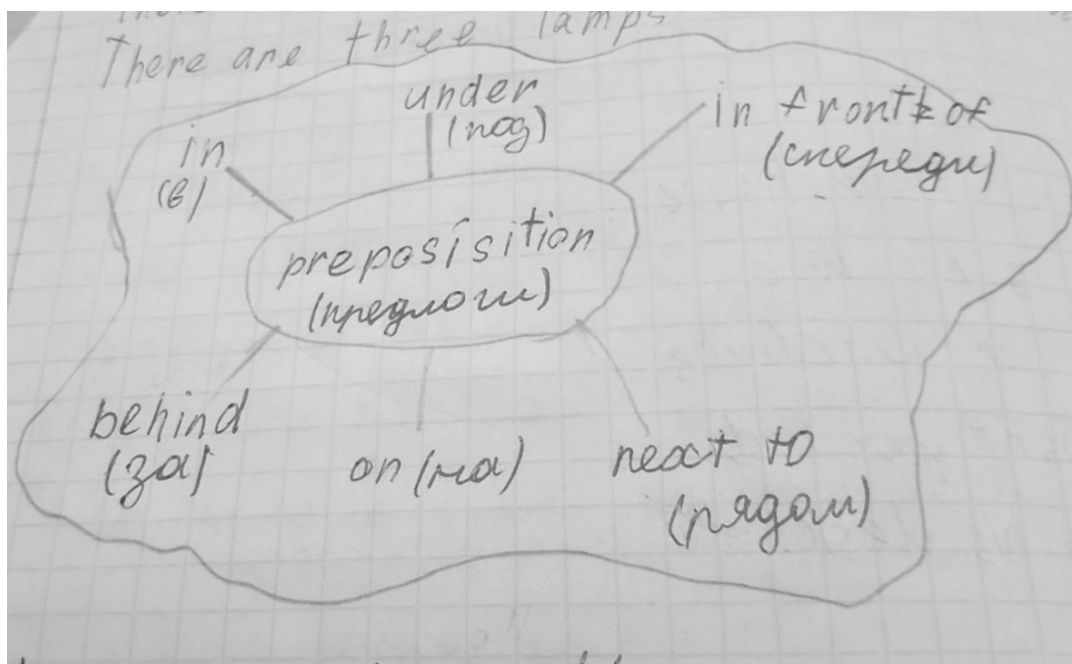 There are three lamps
under
(под)
in front of
(спереди)
in
(в)
preposisition
(предлоги)
behind
(за)
on (на)
next to
(рядом)